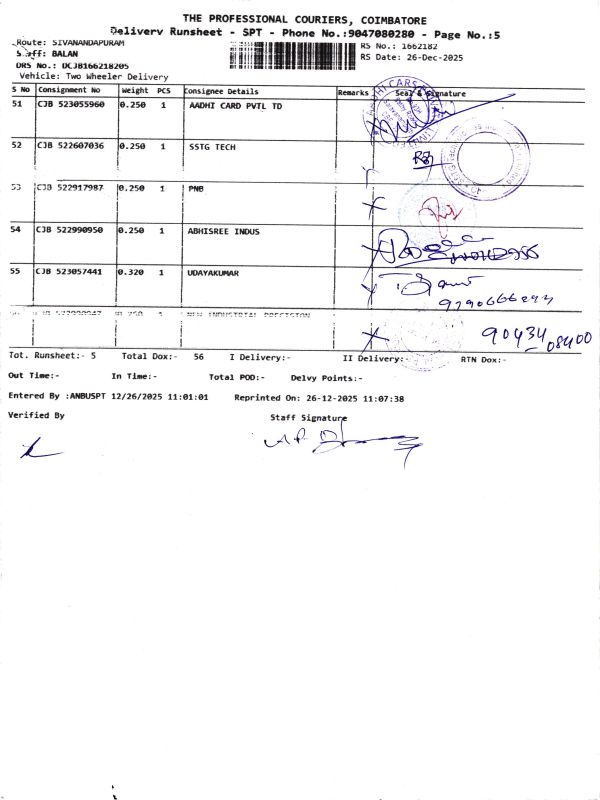 THE PROFESSIONAL COURIERS, COIMBATORE
Delivery Runsheet - SPT - Phone No.:9047080280 - Page No.:5
Route: SIVANANDAPURAM
Staff: BALAN
DRS No.: DCJB166218205
Vehicle: Two Wheeler Delivery
RS No.: 1662182
RS Date: 26-Dec-2025
S No Consignment No Weight PCS Consignee Details Remarks Seal & Signature
51 CJB 523055960 0.250 1 AADHI CARD PVTL TD
52 CJB 522607036 0.250 1 SSTG TECH
53 CJB 522917987 0.250 1 PNB
54 CJB 522990950 0.250 1 ABHISREE INDUS
55 CJB 523057441 0.320 1 UDAYAKUMAR
9790666297
NEW INDUSTRIAL PRECISION
90434 08400
Tot. Runsheet:- 5 Total Dox:- 56 I Delivery:- II Delivery:- RTN Dox:-
Out Time:- In Time:- Total POD:- Delvy Points:-
Entered By :ANBUSPT 12/26/2025 11:01:01 Reprinted On: 26-12-2025 11:07:38
Verified By Staff Signature